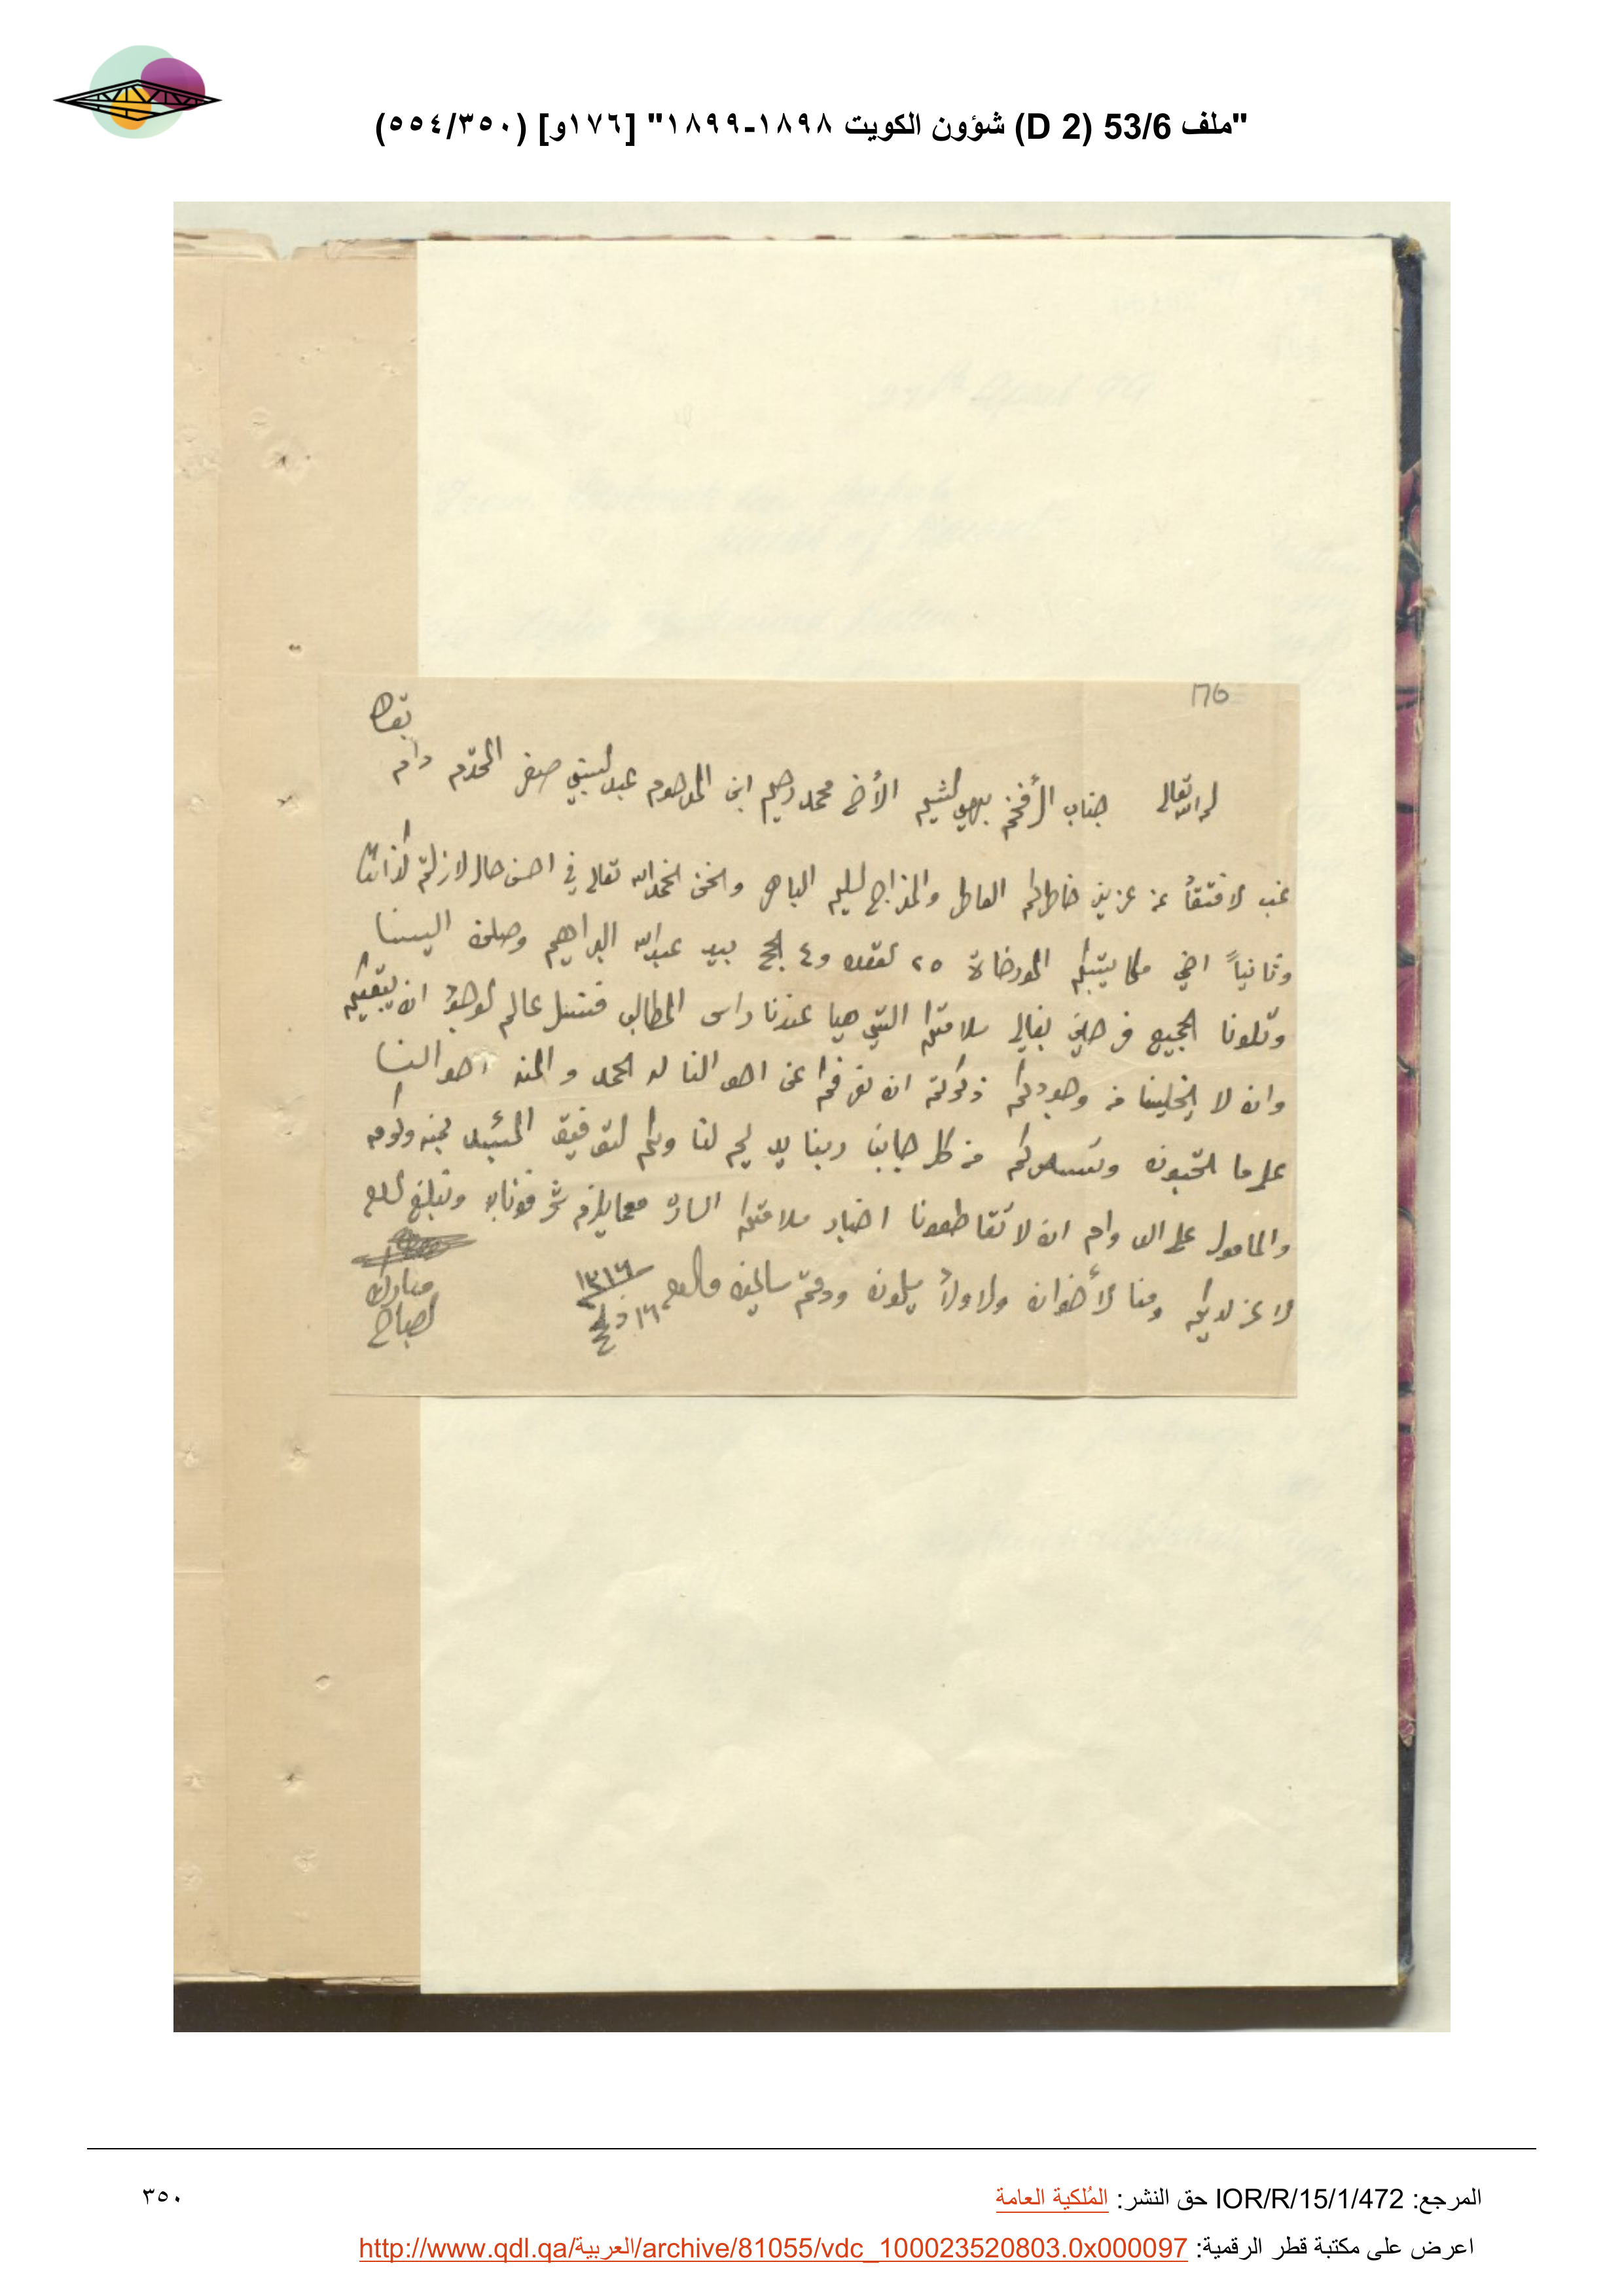 "ملف 53/6 (D 2) شؤون الكويت ١٨٩٨-١٨٩٩" [١٧٦و] (٣٥٠/٥٥٤)
176
بقاه
لله تعالى جناب الأفخم بهي الشيم الأخ محمد رحيم ابن المرحوم عبد النبي صفر المحترم دام
غب الافتقاد عن عزيز خاطركم العاطر والمزاج السليم الباهر ونحن الحمد لله تعالى في احسن حال لازلتم كذالك
وثانياً اخي مكاتيبكم المورخات ٢٥ القعده و٤ الحج بيد عبدالله البراهيم وصلن الينا
وتلونا الجميع فرحين بغالي سلامتكم التي هيا عندنا راس المطالب فنسئل عالم الوجود ان يبقيكم
وان لا يخلينا من وجودكم ذكرتم ان نعرفكم عن احوالنا لله الحمد والمنه احوالنا
على ما تحبون ونسركم من كل جانب ربنا يديم لنا ولكم التوفيق بمنه وكرمه
والمامول على الدوام ان لا تقاطعونا اخبار سلامتكم الساره مع ما يلزم شرفونا به وتبلغ السلام
لاعز لديكم ومنا الأخوان والاولاد يسلمون ودمتم سالمين والسلام
١٣١٦
١٦ ذ الحج
مبارك
الصباح
المرجع: IOR/R/15/1/472 حق النشر: المُلكية العامة
٣٥٠
اعرض على مكتبة قطر الرقمية: http://www.qdl.qa/العربية/archive/81055/vdc_100023520803.0x000097